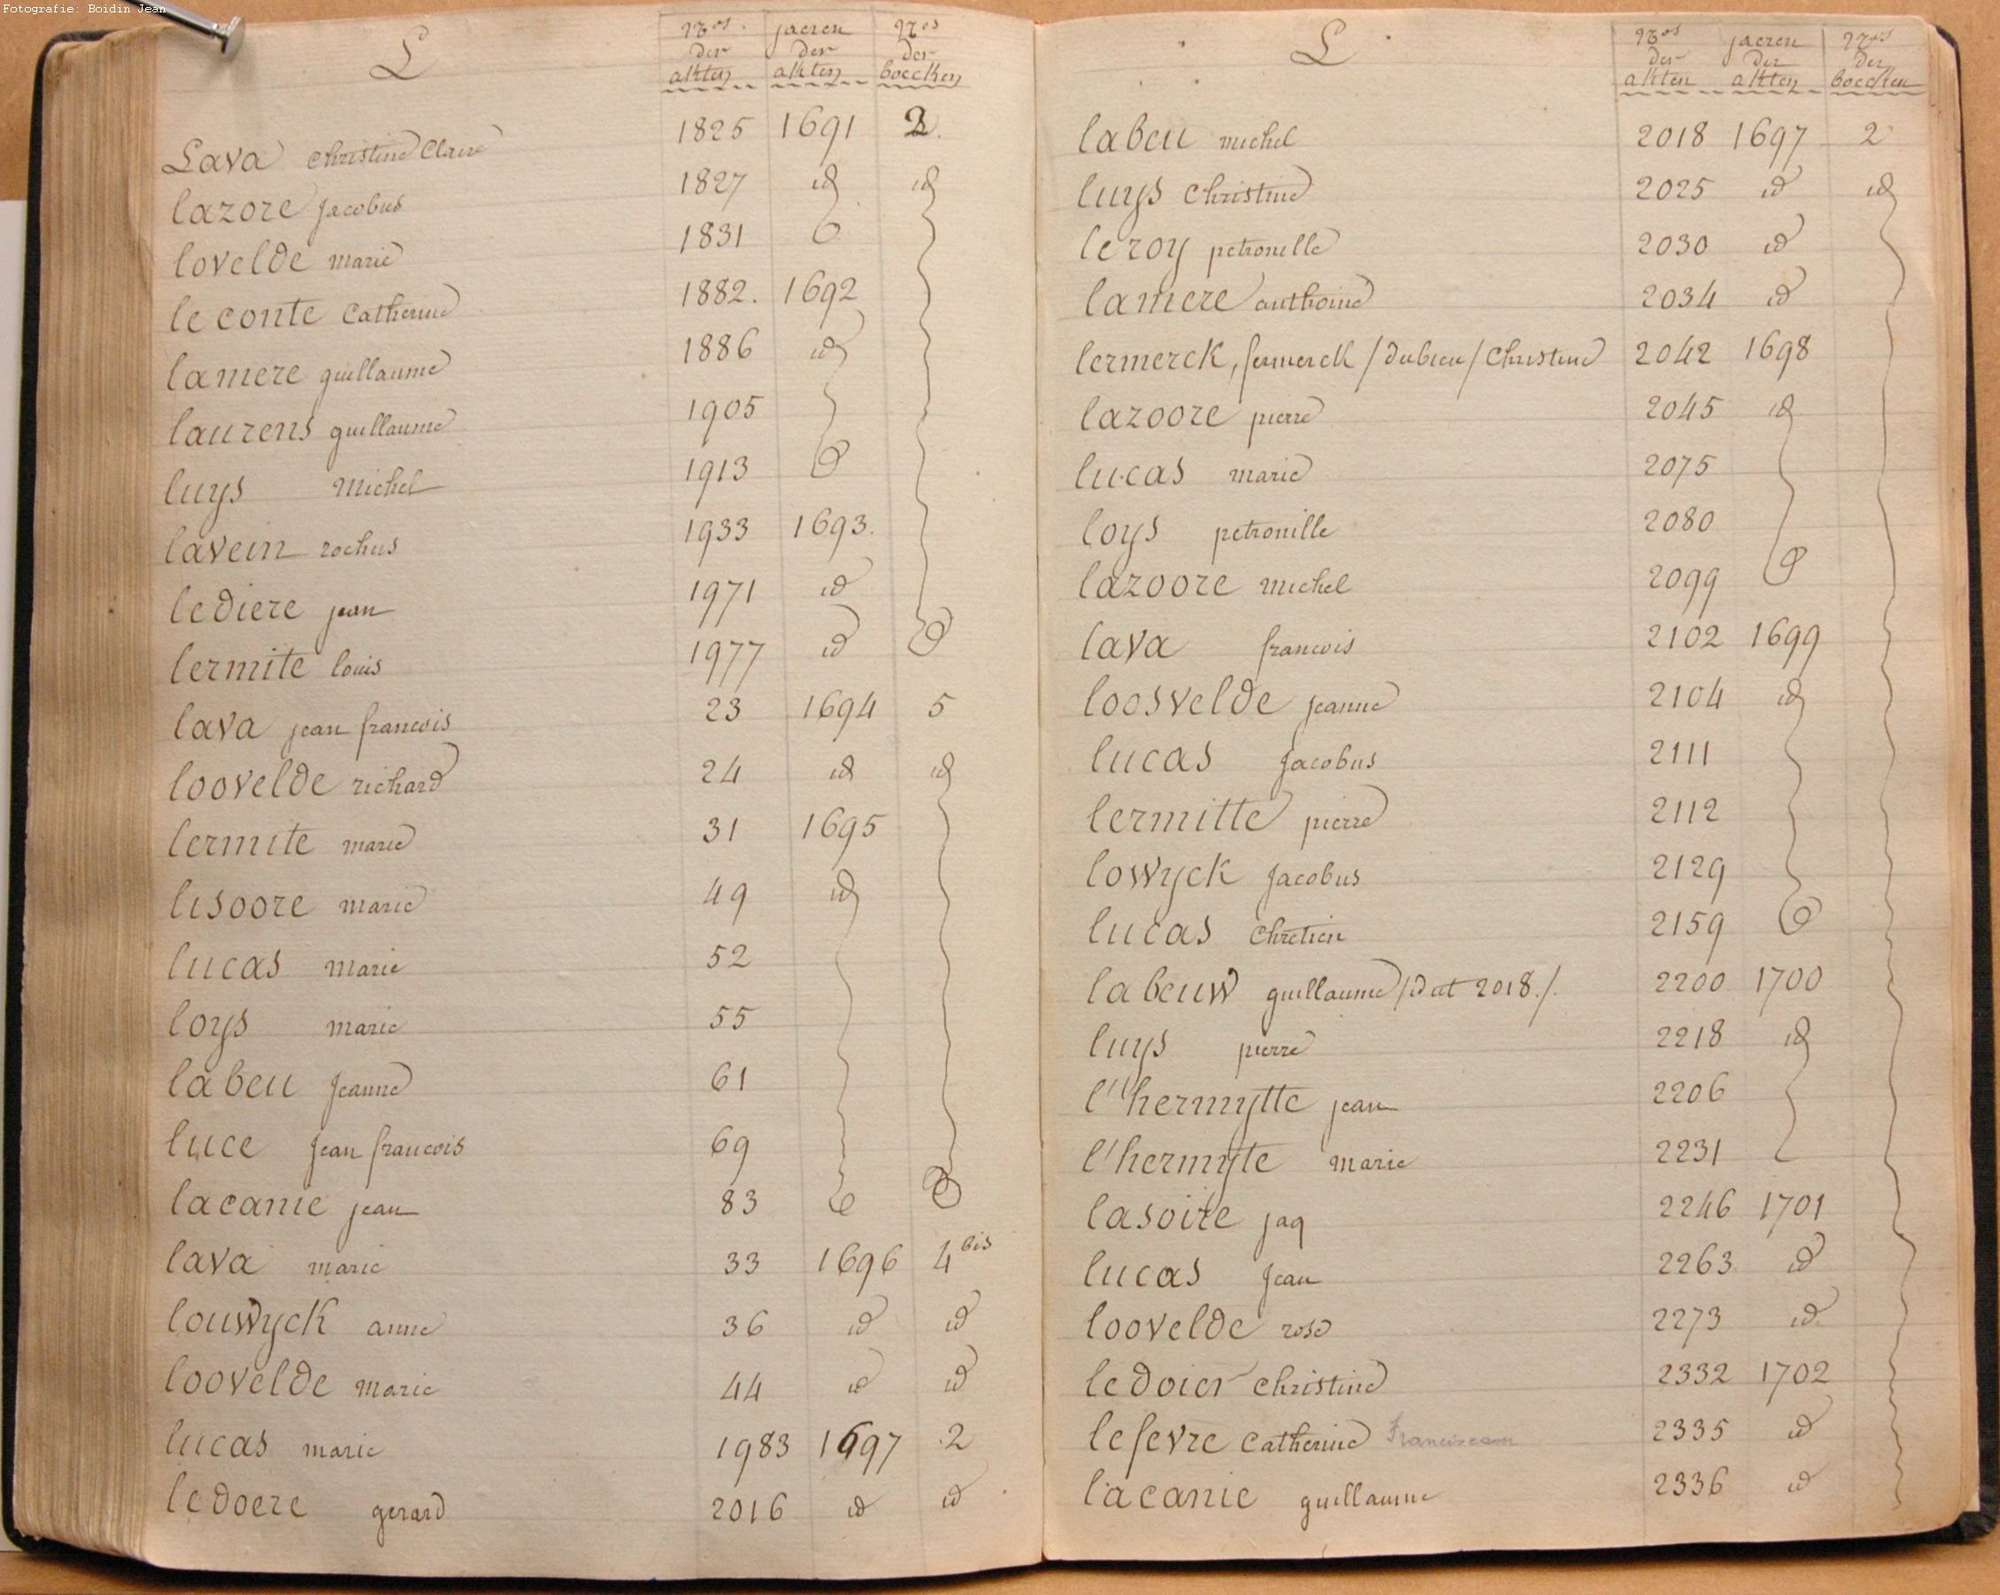 Fotografie: Boidin Jean
L
Nos jaeren Nos
der der der
akten akten boecken
Lava Christine Claire 1825 1691 2
lazore Jacobus 1827 id id
lovelde marie 1831
le conte Catherine 1882. 1692
lamere guillaume 1886 id
laurens guillaume 1905
luys Michel 1913
lavein rochus 1933 1693.
lediere jean 1971 id
lermite louis 1977 id
lava jean francois 23 1694 5
loovelde richard 24 id id
lermite marie 31 1695
lisoore marie 49 id
lucas marie 52
loys marie 55
labeu Jeanne 61
luce Jean francois 69
lacanie jean 83
lava marie 33 1696 4 bis
louwyck anne 36 id id
loovelde marie 44 id id
lucas marie 1983 1697 2
ledoere gerard 2016 id id
L
Nos jaeren Nos
der der der
akten akten boecken
labeu michel 2018 1697 2
luys Christine 2025 id id
leroy petronille 2030 id
lamere anthoine 2034 id
lermerck, fermerck / dubieu / Christine 2042 1698
lazoore pierre 2045 id
lucas marie 2075
loys petronille 2080
lazoore michel 2099
lava francois 2102 1699
loosvelde jeanne 2104 id
lucas Jacobus 2111
lermitte pierre 2112
lowyck Jacobus 2129
lucas Chretien 2159
labeuw guillaume /dat 2018./. 2200 1700
luys pierre 2218 id
l'hermytte jean 2206
l'hermyte marie 2231
lasoire jaq 2246 1701
lucas Jean 2263 id
loovelde rose 2273 id
ledoier Christine 2332 1702
lefevre Catherine 2335 id
lacanie guillaume 2336 id